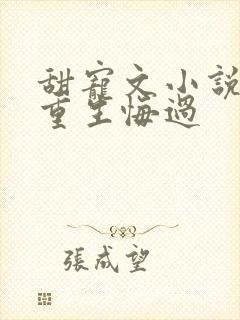 甜寵文小說
重生悔過
張成望